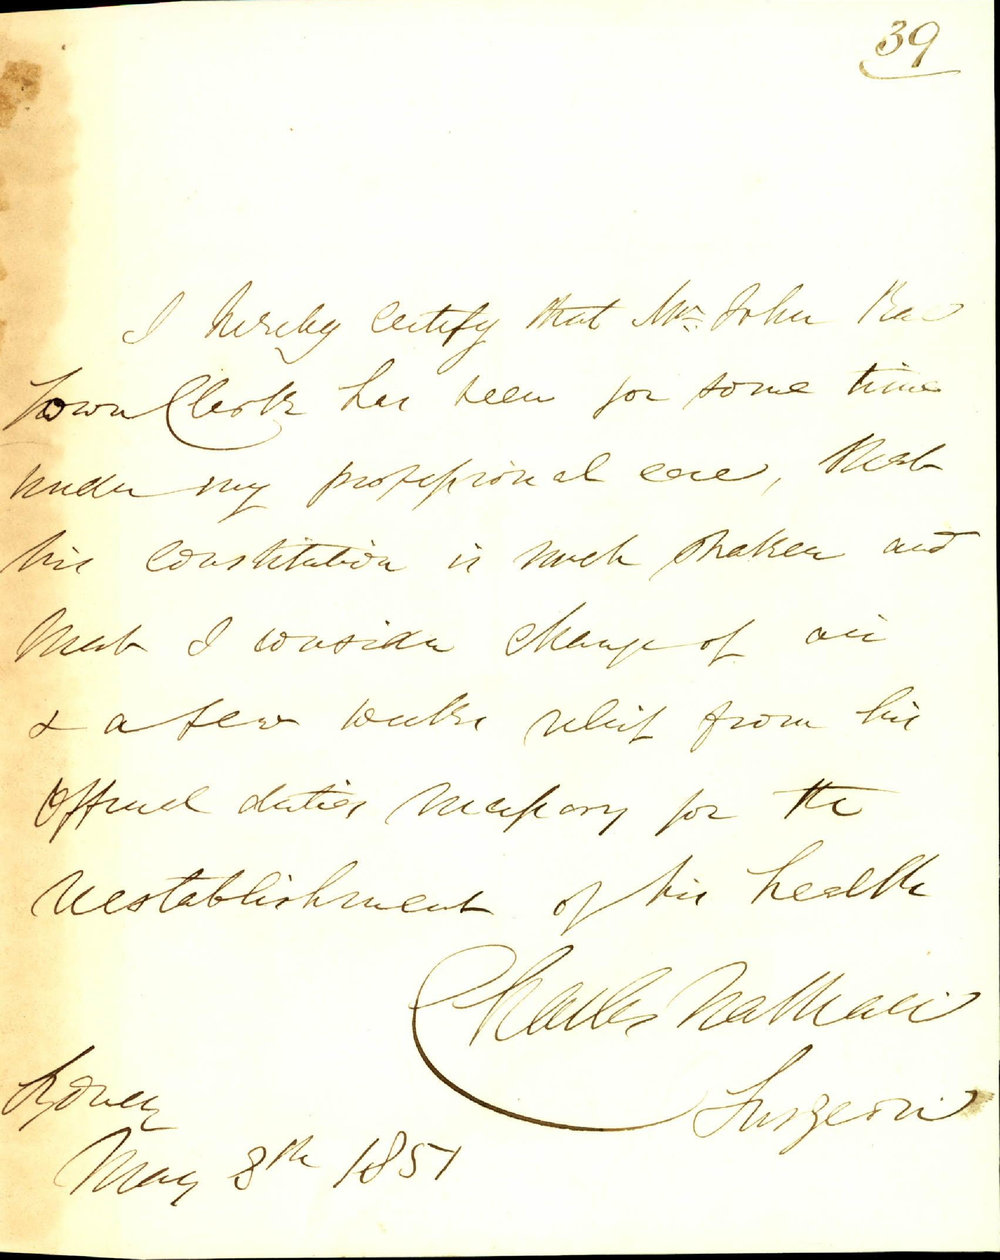 39
I hereby certify that Mr. John Rae
Town Clerk has been for some time
under my professional care, that
his constitution is much shaken and
that I consider change of air
& a few weeks relief from his
Official duties necessary for the
reestablishment of his health
Charles Nathan
Surgeon
Sydney
May 8th 1851